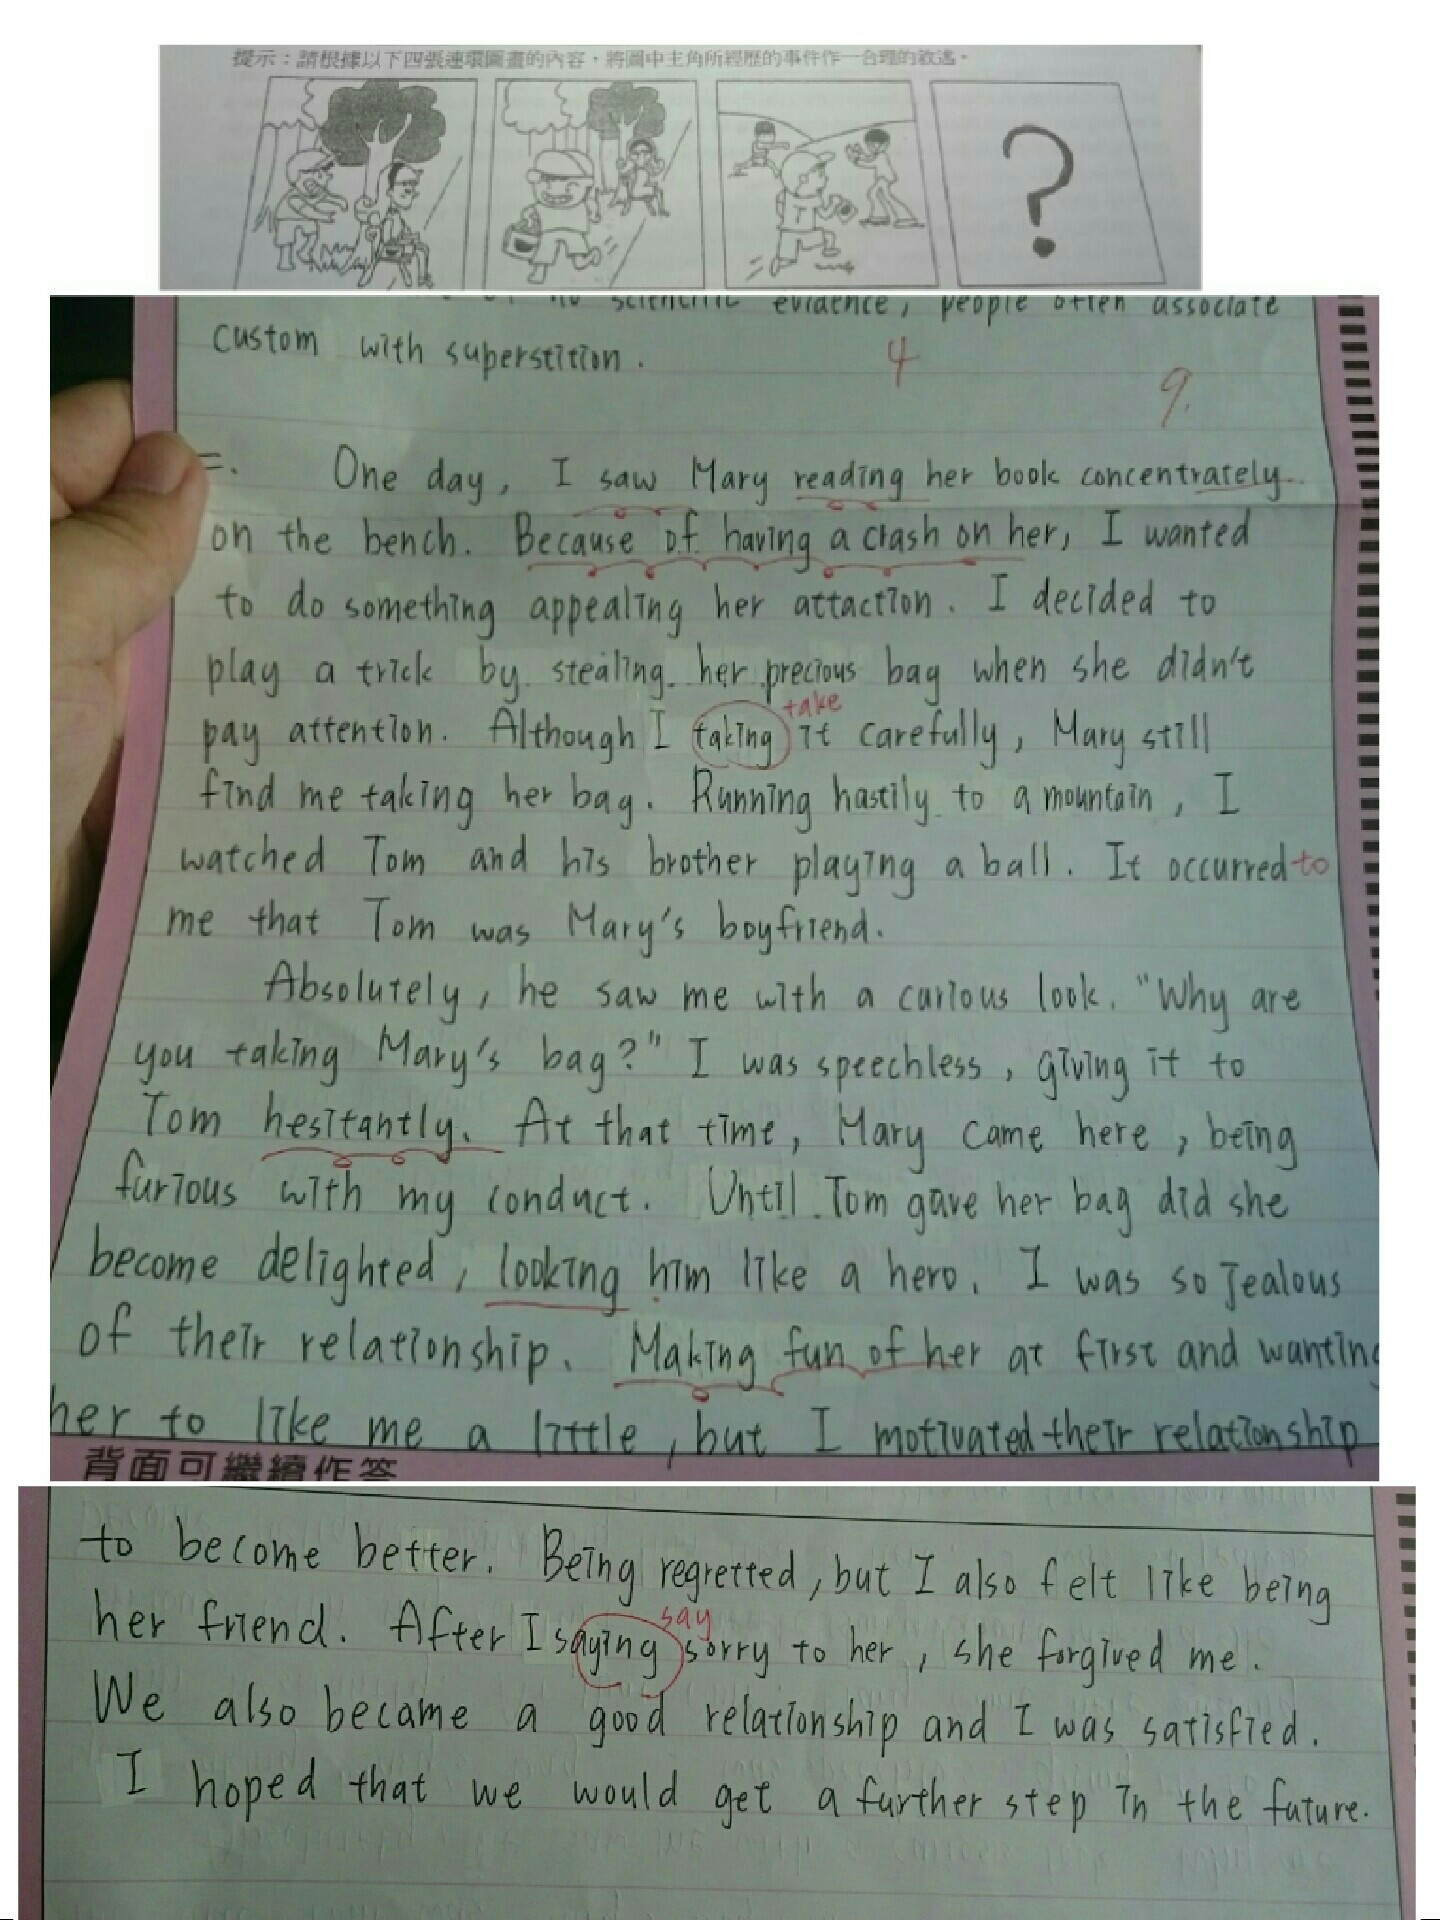 提示：請根據以下四張連環圖畫的內容，將圖中主角所經歷的事件作一合理的敘述。
?
no scientific evidence, people often associate
custom with superstition.
4
9.
二. One day, I saw Mary reading her book concentrately
on the bench. Because of having a crash on her, I wanted
to do something appealing her attaction. I decided to
play a trick by stealing her precious bag when she didn't
take
pay attention. Although I taking it carefully, Mary still
find me taking her bag. Running hastily to a mountain, I
watched Tom and his brother playing a ball. It occurred to
me that Tom was Mary's boyfriend.
Absolutely, he saw me with a curious look. "Why are
you taking Mary's bag?" I was speechless, giving it to
Tom hesitantly. At that time, Mary came here, being
furious with my conduct. Until Tom gave her bag did she
become delighted, looking him like a hero. I was so jealous
of their relationship. Making fun of her at first and wanting
her to like me a little, but I motivated their relationship
背面可繼續作答
to become better. Being regretted, but I also felt like being
say
her friend. After I saying sorry to her, she forgived me.
We also became a good relationship and I was satisfied.
I hoped that we would get a further step in the future.